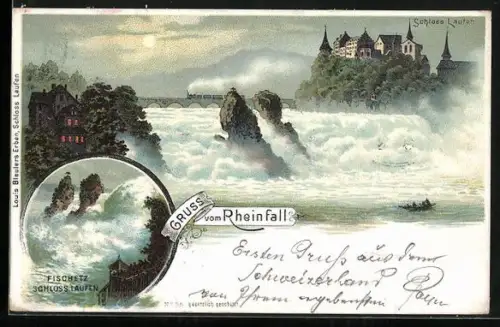 Schloss Laufen
Louis Bleulers Erben, Schloss Laufen
GRUSS vom Rheinfall
FISCHETZ
SCHLOSS LAUFEN
gesetzlich geschützt
Ersten Gruß aus dem
Schweizerland
von Ihrem ergebensten